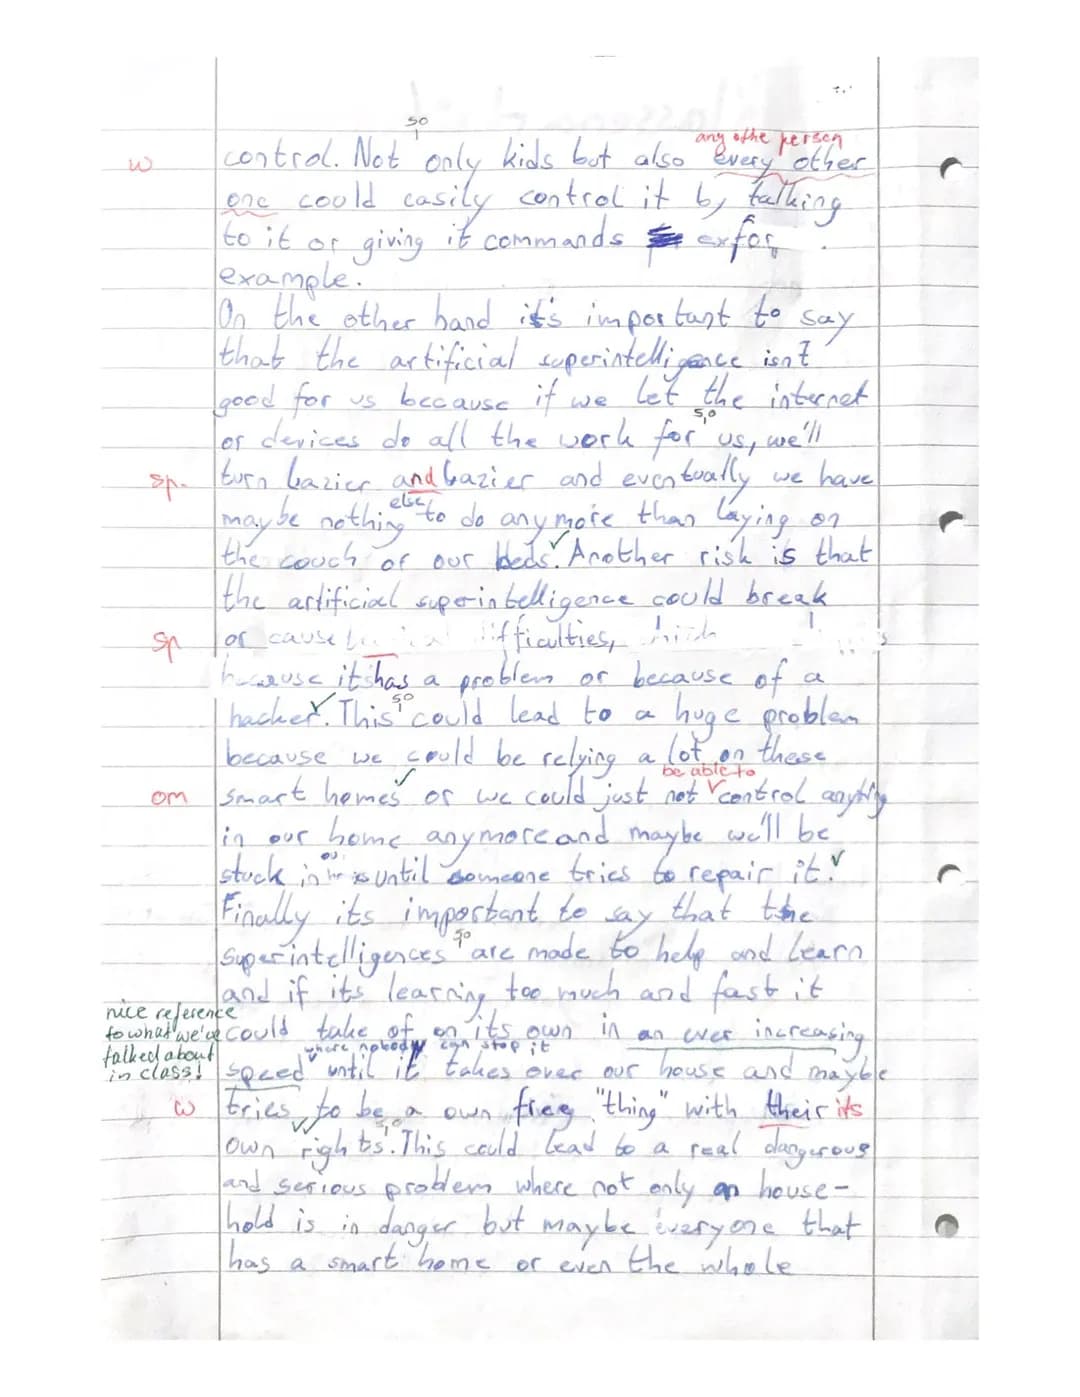 50
any othe person
w control. Not only kids but also every other
one could easily control it by talking
to it or giving it commands exfor
example.
On the other hand it's important to say
that the artificial superintelligence isn't
good for us because if we let the internet
50
or devices do all the work for us, we'll
sp. turn lazier and lazier and eventually we have
else
maybe nothing to do anymore than laying on
the couch or our beds. Another risk is that
the artificial superintelligence could break
sp or cause difficulties,
because itshas a problem or because of a
50
hacker. This could lead to a huge problem
because we could be relying a lot on these
be able to
om smart homes or we could just not control anything
in our home anymore and maybe we'll be
stuck in until someone tries to repair it.
Finally its important to say that the
50
superintelligences are made to help and learn
and if its learning too much and fast it
nice reference
to what we've could take of on its own in an ever increasing
talked about where nobody can stop it
in class! speed until it takes over our house and maybe
w tries to be a own free "thing" with their its
50
own rights. This could lead to a real dangerous
and serious problem where not only an house-
hold is in danger but maybe everyone that
has a smart home or even the whole